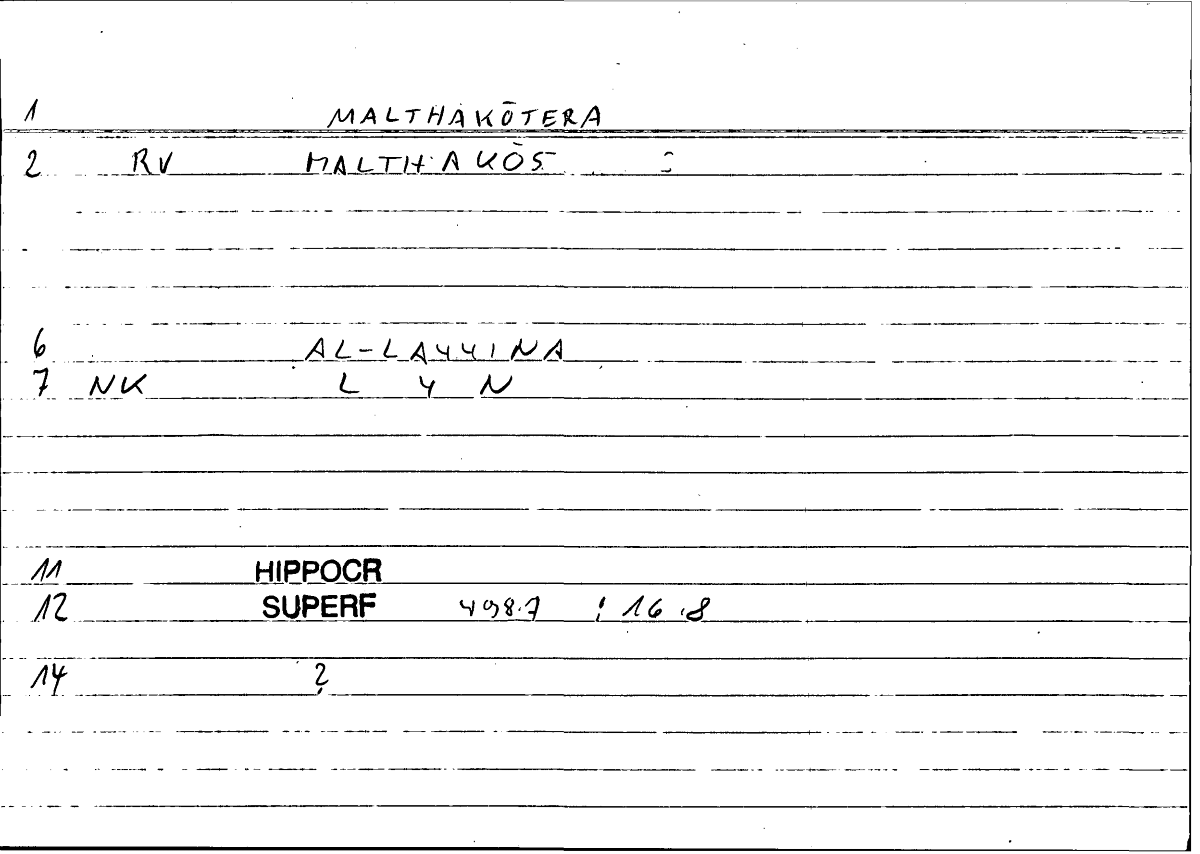 1 MALTHAKŌTERA
2 RV MALTHAKŌS :
6 AL-LAYYINA
7 NK L Y N
11 HIPPOCR
12 SUPERF 498.7 : 16.8
14 ?